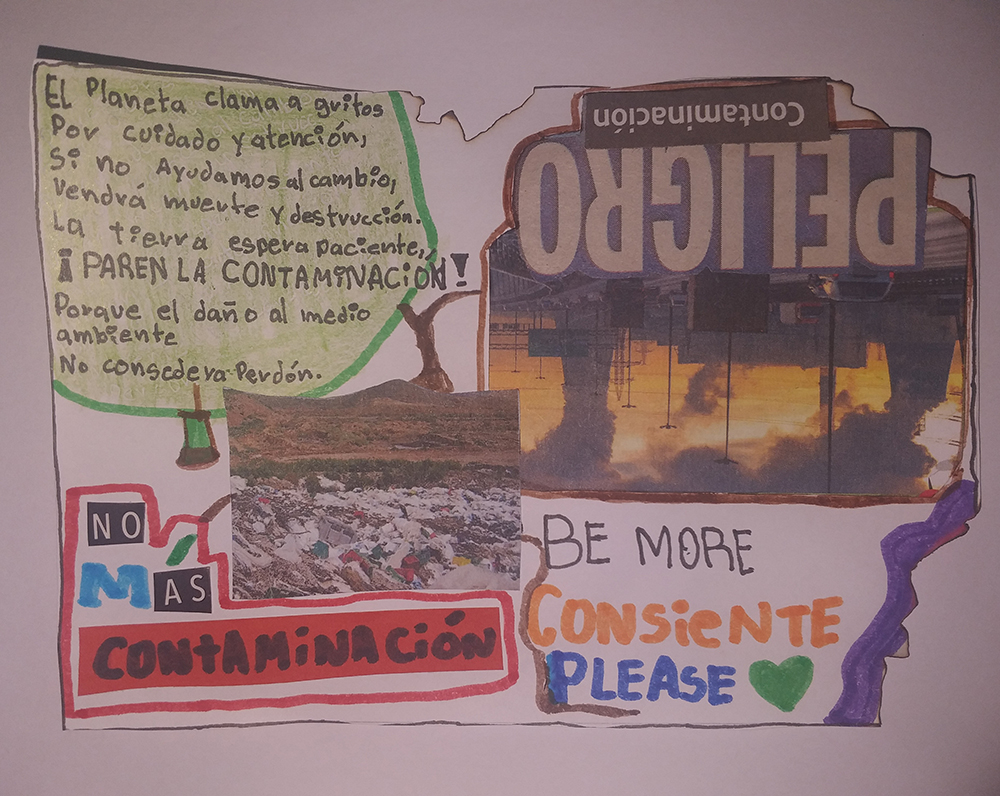 El Planeta clama a gritos
Por cuidado y atención,
Si no Ayudamos al cambio,
Vendrá muerte y destrucción.
La tierra espera paciente,
¡PAREN LA CONTAMINACIÓN!
Porque el daño al medio
ambiente
No consedera Perdón.
Contaminación
PELIGRO
NO
MÁS
CONTAMINACIÓN
BE MORE
CONSIENTE
PLEASE